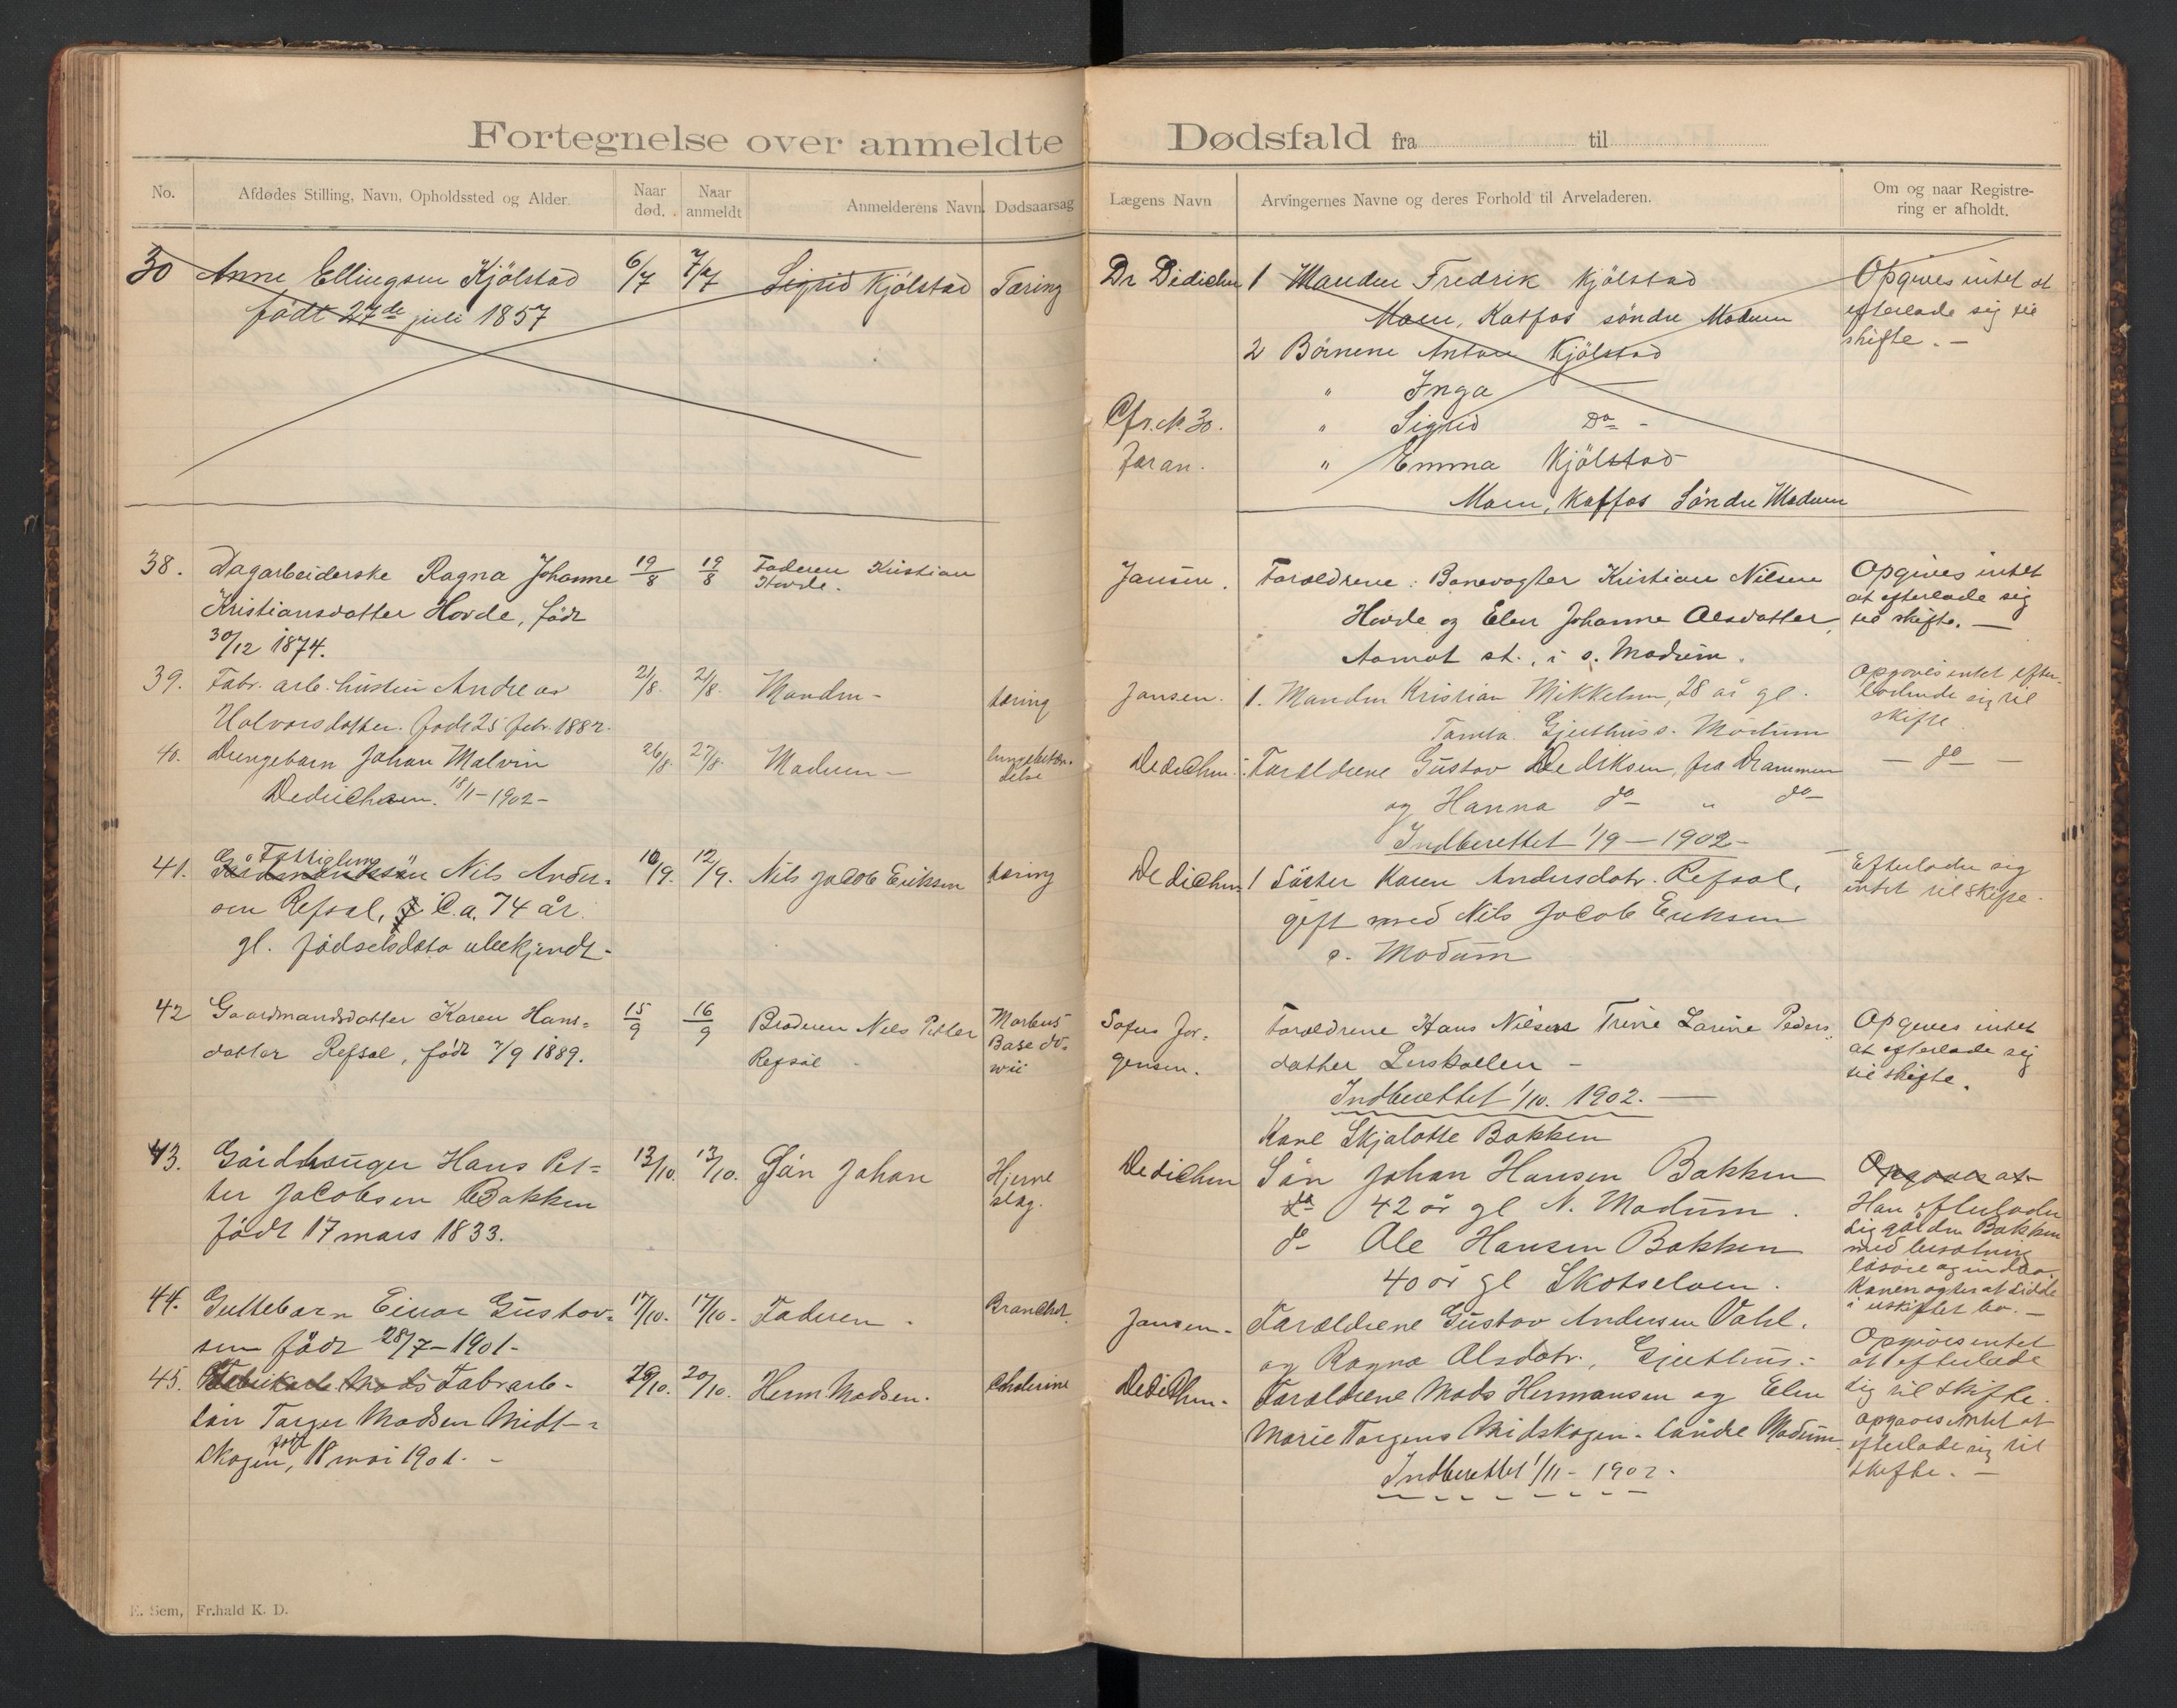 Fortegnelse over anmeldte Dødsfald fra til
No.
Afdødes Stilling, Navn, Opholdssted og Alder.
Naar død.
Naar anmeldt
Anmelderens Navn.
Dødsaarsag
Lægens Navn
Arvingernes Navne og deres Forhold til Arveladeren.
Om og naar Registre-
ring er afholdt.
30 Anne Ellingsen Kjölstad 6/7 7/7 Sigrid Kjölstad Tæring
födt 27de juli 1857
Dr Dedichen 1 Manden Fredrik Kjölstad
Moen, Katfos söndre Modum
2 Börnene Anton Kjölstad
" Inga
Cfr. N. 30. " Sigrid Do -
foran. " Emma Kjölstad
Moen, Katfos Söndre Modum
Opgives intet at
efterlade sig til
skifte. -
38. Dagarbeiderske Ragna Johanne 19/8 19/8 Faderen Kristian
Kristiansdatter Hovde, födt Hovde.
30/12 1874.
Jansen. Forældrene: Banevogter Kristian Nilsen
Hovde og Elen Johanne Olsdatter,
Aamot st., i s. Modum.
Opgives intet
at efterlade sig
til skifte. -
39. Fabr. arb. hustru Andrea 21/8. 21/8. Manden - tæring
Halvorsdatter. födt 25 febr. 1882.
Jansen. 1. Manden Kristian Mikkelsen, 28 år gl.
Gjeithus s. Modum
Opgives intet efter-
ladende sig til
skifte.
40. Drengebarn Johan Malvin 26/8. 27/8. Moderen - lungebetæn-
delse
Dedichsen. 18/1 - 1902 -
Dedichen. Forældrene Gustav Dediksen, fra Drammen
og Hanna do " do
Indberettet 1/9 - 1902 -
- do -
41. Fattiglem Nils Ander- 10/9. 12/9. Nils Jacob Eriksen tæring
sen Refsal, C.a. 74 år
gl. födselsdato ubekjendt -
Dedichen 1 Söster Karen Andersdatr. Refsal,
gift med Nils Jacob Eriksen
s. Modum
Efterlader sig
intet til skifte.
42 Gaardmandsdatter Karen Hans- 15/9 16/9 Broderen Nils Petter Morbus
datter Refsal, födt 7/9 1889. Refsal - Basedo-
wii
Sofus Jör-
gensen.
Forældrene Hans Nilsen Trine Larine Peders-
datter Luskollen -
Indberettet 1/10. 1902. -
Opgives intet
at efterlade sig
til skifte.
43. Gårdbruger Hans Pet- 13/10. 13/10. Sön Johan Hjerne
ter Jacobsen Bakken slag.
födt 17 mars 1833.
Kone Skjalotte Bakken
Dedichen Sön Johan Hansen Bakken
do 42 år gl N. Modum.
do Ole Hansen Bakken
40 år gl Skotselven.
Opgives at
Han efterlader
sig gården Bakken
med besætning
lösöre og indbo.
Konen agter at sidde
i uskiftet bo. -
44. Guttebarn Einar Gustav- 17/10. 17/10. Faderen - Bronchit.
sen födt 28/7 - 1901 -
Jansen - Forældrene Gustav Andersen Vahl.
og Ragna Olsdatr., Gjeithus.
Opgives intet
at efterlade
sig til skifte.
45. Fabrikarb. Mads Fabrarb- 20/10. 20/10. Herm Madsen. Cholerine
sön Torger Madsen Midt-
skogen, födt 18 mai 1901. -
Dedichen - Forældrene Mads Hermansen og Elen
Marie Torgers Midskogen - söndre Modum.
Indberettet 1/11 - 1902.
opgives intet at
efterlade sig til
skifte. -
E. Sem, Fr.hald K. D.